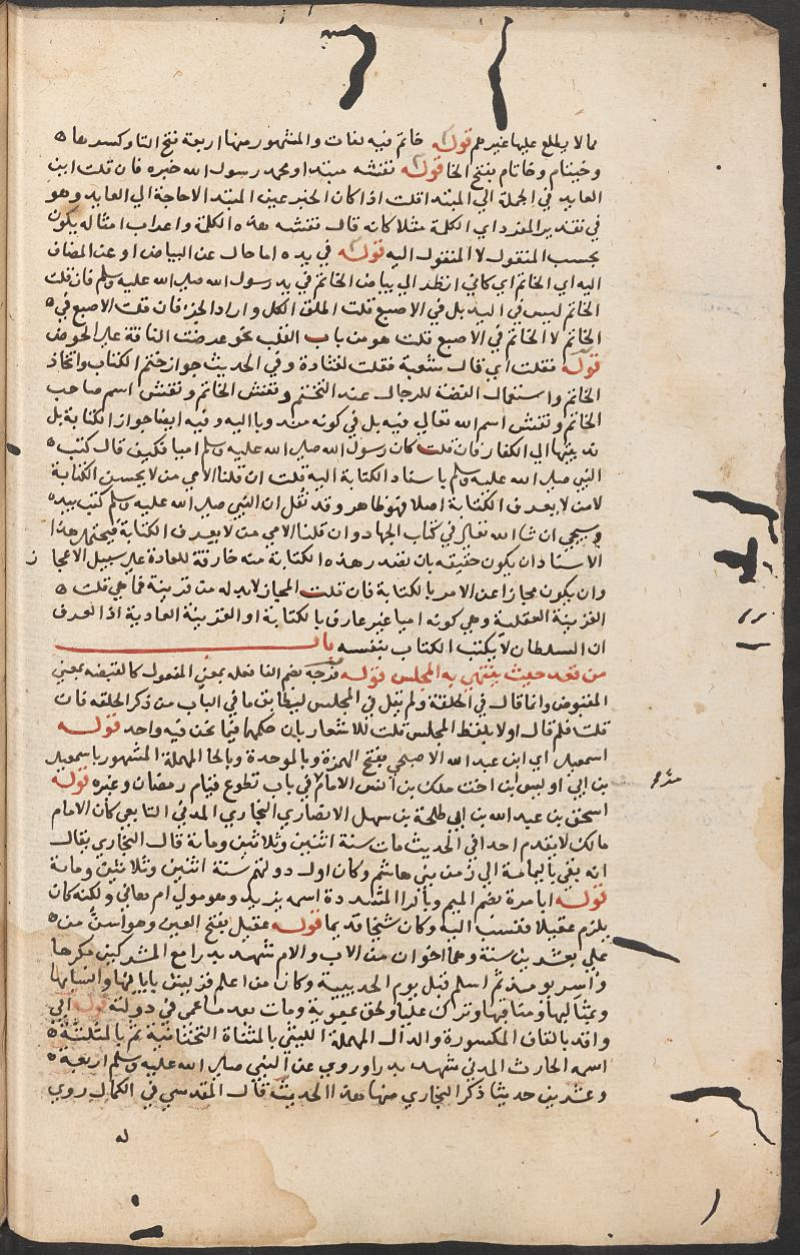 مما لا يطلع عليها غيرهم قوله خاتم فيه لغات والمشهور منها اربعة فتح التا وكسرها
وخيتام وخاتام بفتح الخا قوله نقشه مبتدا ومحمد رسول الله خبره فان قلت اين
العايد في الجملة الي المبتدا قلت اذا كان الخبر عين المبتدا لاحاجة الي العايد وهو
في تقدير المفرد اي الكلمة مثلا كانه قال نقشه هذه الكلمة واعراب امثاله يكون
بحسب المنقول لا المنقول اليه قوله في يده اما حال عن البياض او عن المضاف
اليه اي الخاتم اي كاني انظر الي بياض الخاتم في يد رسول الله صلي الله عليه وسلم فان قلت
الخاتم ليس في اليد بل في الاصبع قلت اطلق الكل واراد الجزء فان قلت الاصبع في
الخاتم لا الخاتم في الاصبع قلت هو من باب القلب نحو عرضت الناقة علي الحوض
قوله فقلت اي قال شعبة فقلت لقتادة وفي الحديث جواز ختم الكتاب واتخاذ
الخاتم واستعمال الفضة للرجال عند التختم ونقش الخاتم ونقش اسم صاحب
الخاتم ونقش اسم الله تعالي فيه بل في كونه مندوبا اليه وفيه ايضا جواز الكتابة بل
ندبيتها الي الكفار فان قلت كان رسول الله صلي الله عليه وسلم اميا فكيف قال كتب
النبي صلي الله عليه وسلم باسناد الكتابة اليه قلت ان قلنا الامي من لا يحسن الكتابة
لا من لا يعرف الكتابة اصلا فهو ظاهر وقد نقل ان النبي صلي الله عليه وسلم كتب بيده
وسيجي ان شا الله تعالي في كتاب الجهاد وان قلنا الامي من لا يعرف الكتابة فيحتمل هذا
الاسناد ان يكون حقيقه بان تصدر هذه الكتابة منه خارقة للعادة علي سبيل الاعجاز
وان يكون مجازا عن الامر بالكتابة فان قلت المجاز لابد له من قرينة فما هي قلت
القرينة العقلية وهي كونه اميا غير عارف بالكتابة او القرينة العادية اذ العرف
ان السلطان لا يكتب الكتاب بنفسه باب
من قعد حيث ينتهي به المجلس قوله فرجة بضم الفا فعله بمعني المفعول كالقبضه بمعني
المقبوض وانما قال في الحلقة ولم يقل في المجلس ليطابق ما في الباب من ذكر الحلقه فان
قلت فلم قال اولا بلفظ المجلس قلت للاشعار بان حكمهما فيما نحن فيه واحد قوله
اسمعيل اي ابن عبد الله الاصبحي بفتح الهمزة وبالموحدة وبالحا المهملة المشهور باسمعيل
بن ابي اويس ابن اخت ملك بن انس الامام في باب تطوع قيام رمضان وغيره قوله
مر
اسحق بن عبد الله بن ابي طلحة بن سهل الانصاري النجاري المدني التابعي كان الامام
مالك لا يقدم احدا في الحديث مات سنة اثنين وثلاثين ومائة قال البخاري يقال
انه بقي باليمامة الي زمن بني هاشم وكان اول دولتهم سنة اثنين وثلاثين ومائة
قوله ابا مرة بضم الميم وبالرا المشددة اسمه يزيد وهو مولي ام هاني ولكنه كان
يلزم عقيلا فنسب اليه وكان شيخا قديما قوله عقيل بفتح العين وهو اسن من
علي بعشرين سنة وهما اخوان من الاب والام شهد بدرا مع المشركين مكرها
واسر يومئذ ثم اسلم قبل يوم الحديبية وكان من اعلم قريش بايامها وانسابها
ومثالبها ومناقبها وترك عليا ولحق بمعوية ومات بعد ما عمي في دولته قوله ابي
واقد بالقاف المكسورة والدال المهملة الليثي بالمثناة التحتانية ثم بالمثلثة
اسمه الحارث المدني شهد بدرا وروي عن النبي صلي الله عليه وسلم اربعة
وعشرين حديثا ذكر البخاري منها هذا الحديث قال المقدسي في الكمال روي
له